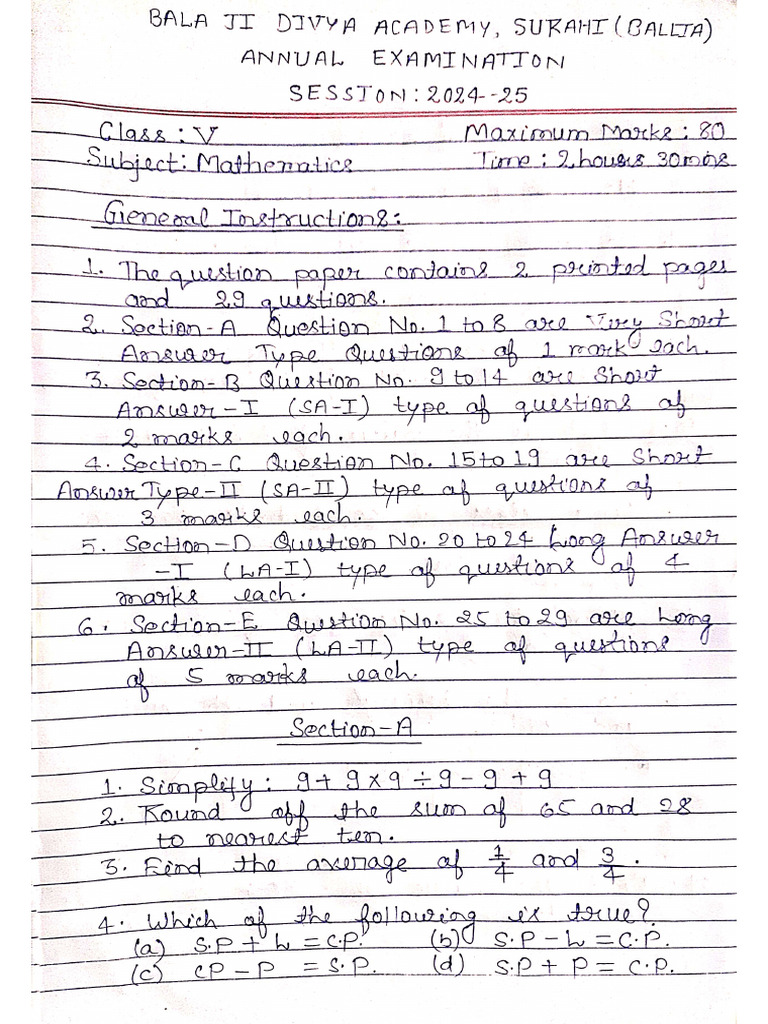 BALA JI DIVYA ACADEMY, SURAHI (BALLIA)
ANNUAL EXAMINATION
SESSION: 2024--25
Class: V Maximum Marks: 80
Subject: Mathematics Time: 2 hours 30 mins
General Instructions:
1. The question paper contains 2 printed pages
and 29 questions.
2. Section-A Question No. 1 to 8 are Very Short
Answer Type Questions of 1 mark each.
3. Section-B Question No. 9 to 14 are Short
Answer-I (SA-I) type of questions of
2 marks each.
4. Section-C Question No. 15 to 19 are Short
Answer Type-II (SA-II) type of questions of
3 marks each.
5. Section-D Question No. 20 to 24 Long Answer
-I (LA-I) type of questions of 4
marks each.
6. Section-E Question No. 25 to 29 are Long
Answer-II (LA-II) type of questions
of 5 marks each.
Section-A
1. Simplify: 9+9×9÷9-9+9
2. Round off the sum of 65 and 28
to nearest ten.
3. Find the average of 1/4 and 3/4.
4. Which of the following is true?
(a) S.P + L = C.P. (b) S.P - L = C.P.
(c) CP - P = S.P. (d) S.P + P = C.P.